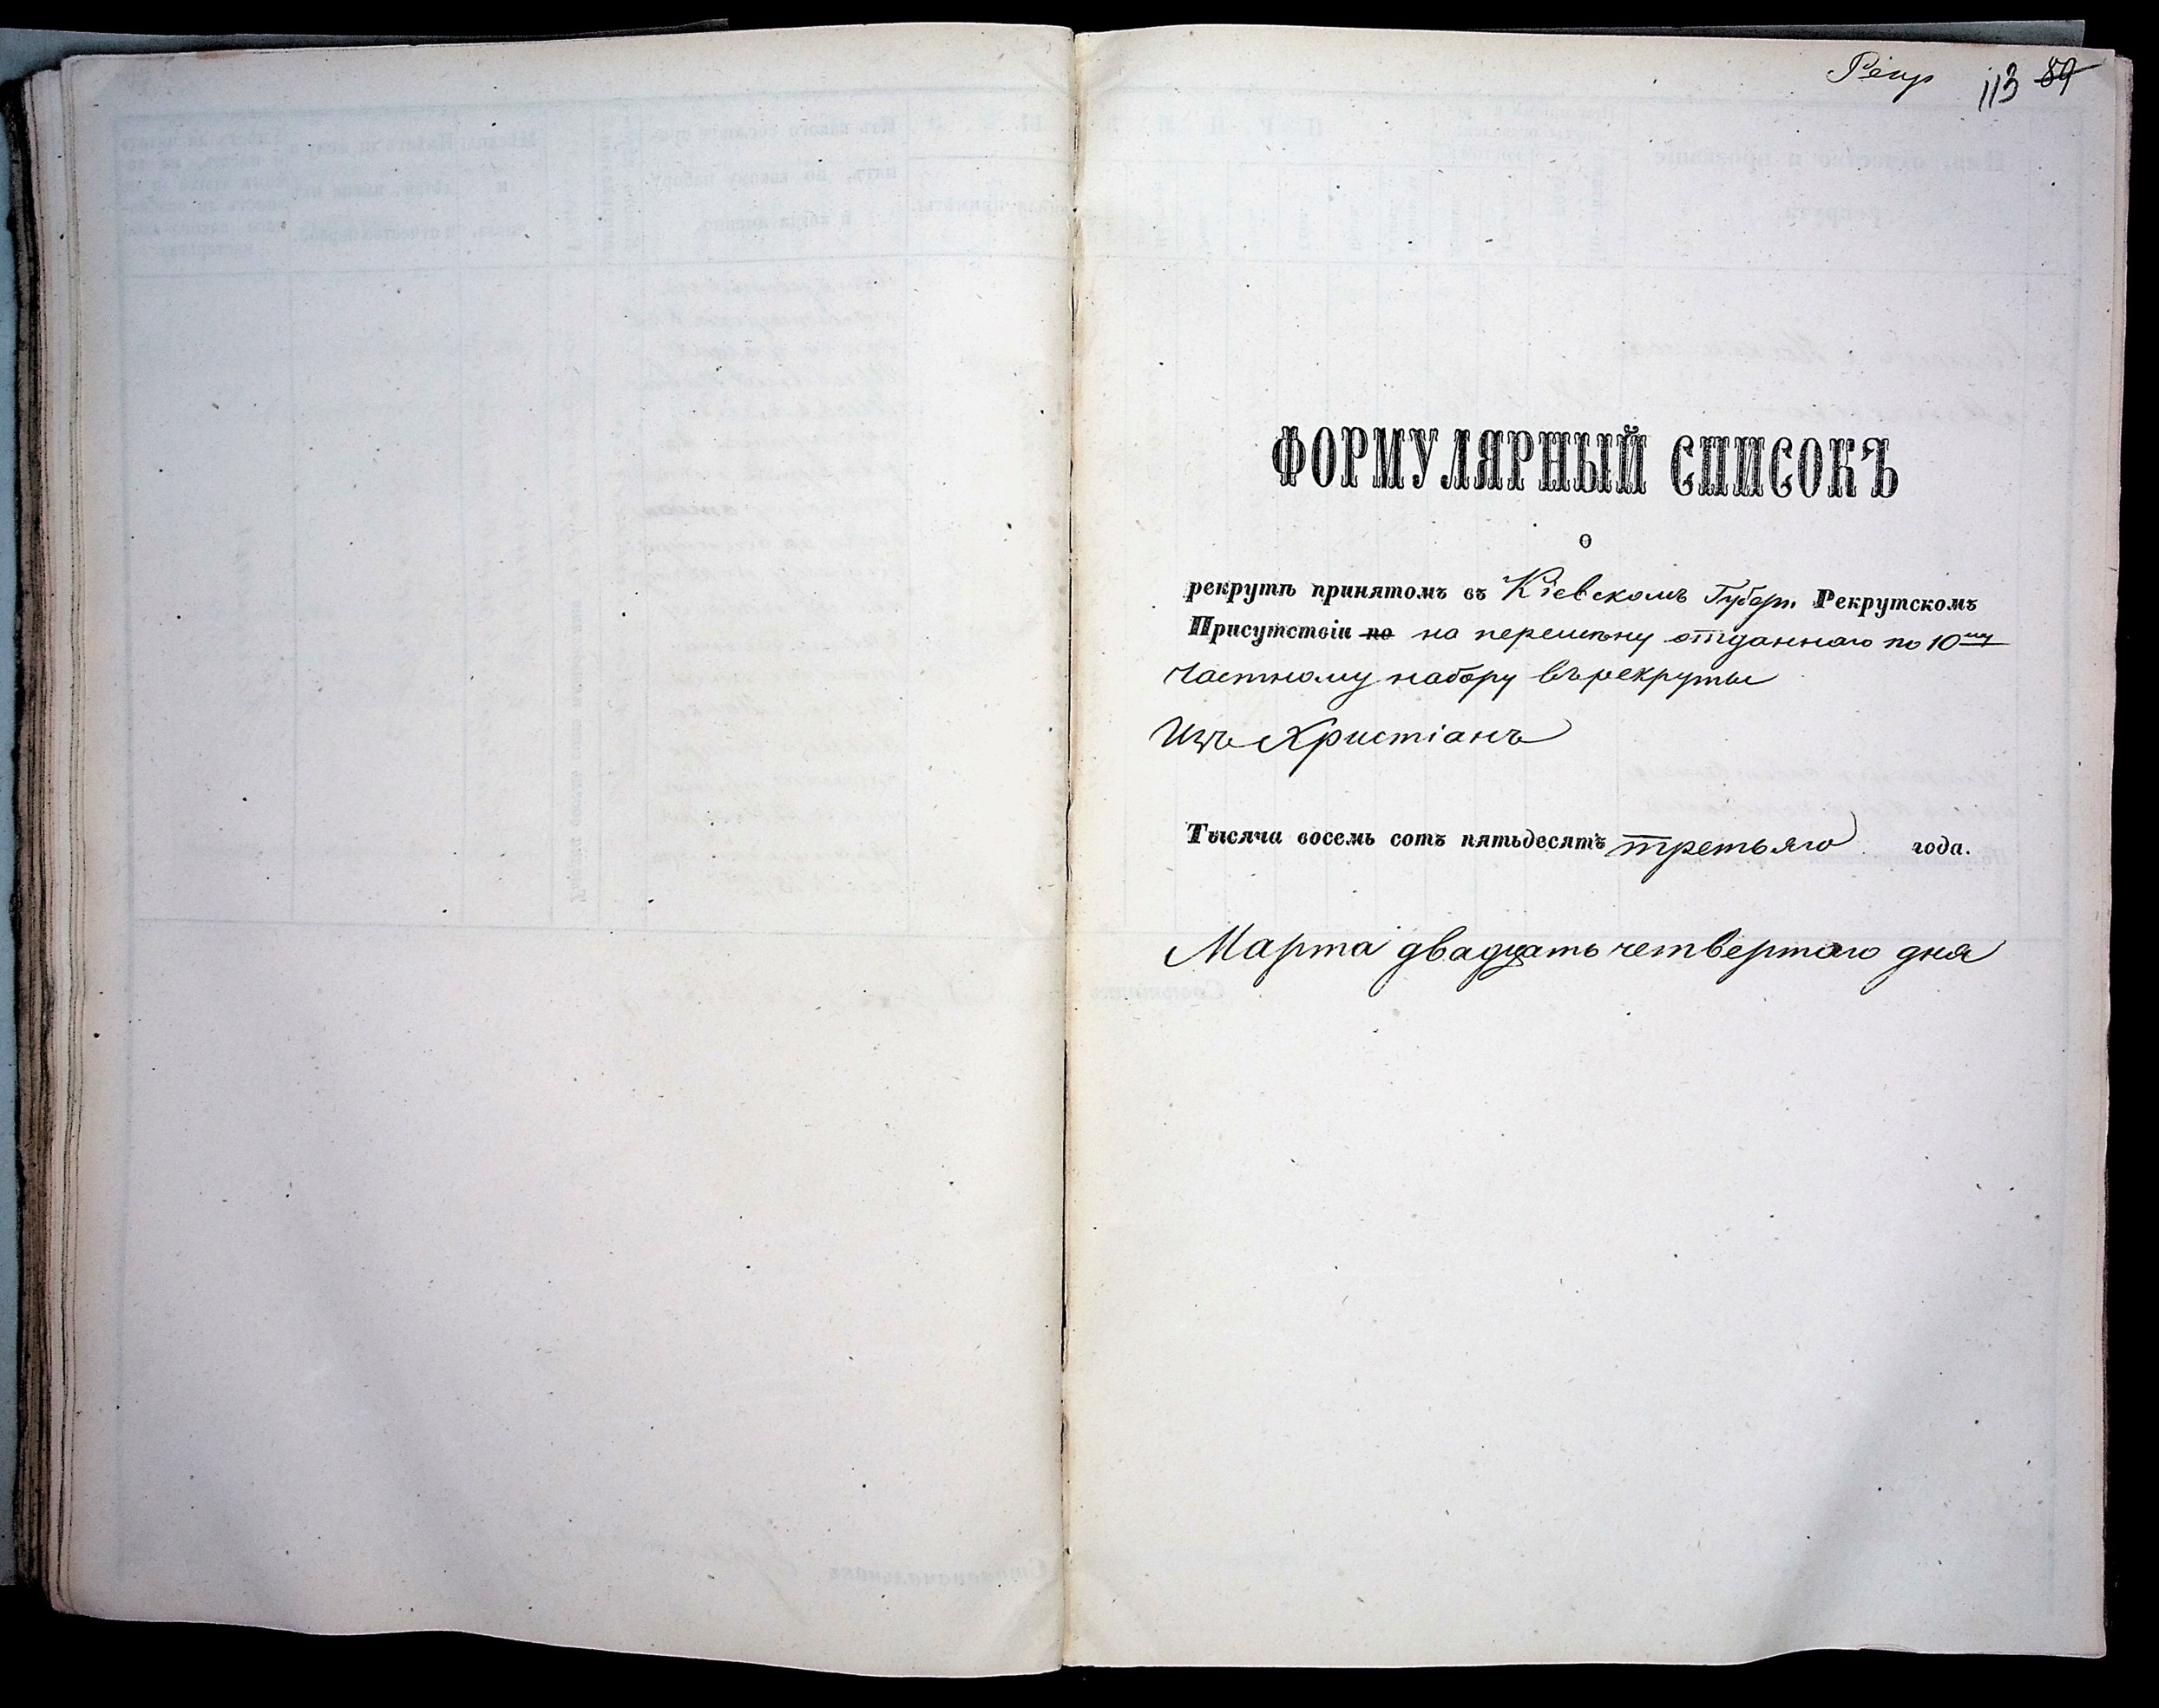 113 89
ФОРМУЛЯРНЫЙ СПИСОКЪ
о
рекрутѣ принятомъ въ Кіевскомъ Губерн. Рекрутскомъ
Присутствіи по на перемѣну отданнаго по 10му
частному набору въ рекруты
Изъ Христіанъ
Тысяча восемь сотъ пятьдесятъ третьяго года.
Марта двадцать четвертаго дня